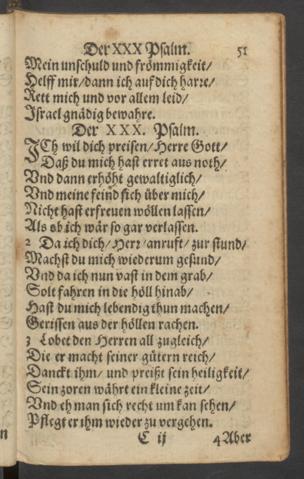 Der XXX Psalm. 51
Mein unschuld und frömmigkeit/
Helff mir/ dann ich auf dich harre/
Rett mich und vor allem leid/
Israel gnädig bewahre.
Der XXX. Psalm.
JCh wil dich preisen/ Herre Gott/
Daß du mich hast erret aus noth/
Vnd dann erhöht gewaltiglich/
Vnd meine feind sich über mich/
Nicht hast erfreuen wöllen lassen/
Als ob ich wär so gar verlassen.
2 Da ich dich/ Herr/ anruft/ zur stund/
Machst du mich wiederum gesund/
Vnd da ich nun vast in dem grab/
Solt fahren in die höll hinab/
Hast du mich lebendig thun machen/
Gerissen aus der höllen rachen.
3 Lobet den Herren all zugleich/
Die er macht seiner gütern reich/
Danckt ihm/ und preißt sein heiligkeit/
Sein zoren währt ein kleine zeit/
Vnd eh man sich recht um kan sehen/
Pflegt er ihm wieder zu vergehen.
C ij 4 Aber